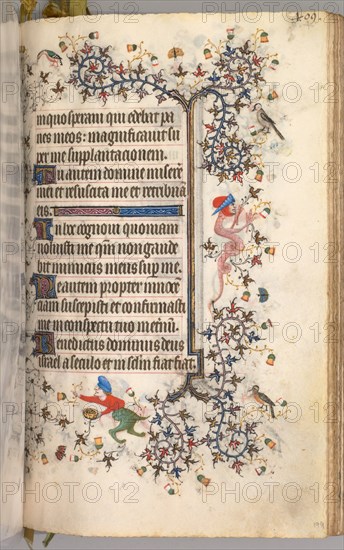 499.
in quo sperani qui edebat pa
nes meos: magnificauit su
per me supplantacionem.
Tu autem domine miserere
mei et resuscita me et retribuā
eis.
In hoc cognoui quoniam
uoluisti me qm̄ non gaude
bit inimicus meus sup me.
Me autem propter innocē
ciam suscepisti et confirmasti
me in conspectu tuo in etnū.
Benedictus dominus deus
israel a seculo et in sclm fiat fiat.
PHOTO12